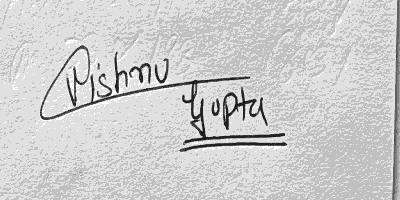 Vishnu
Gupta